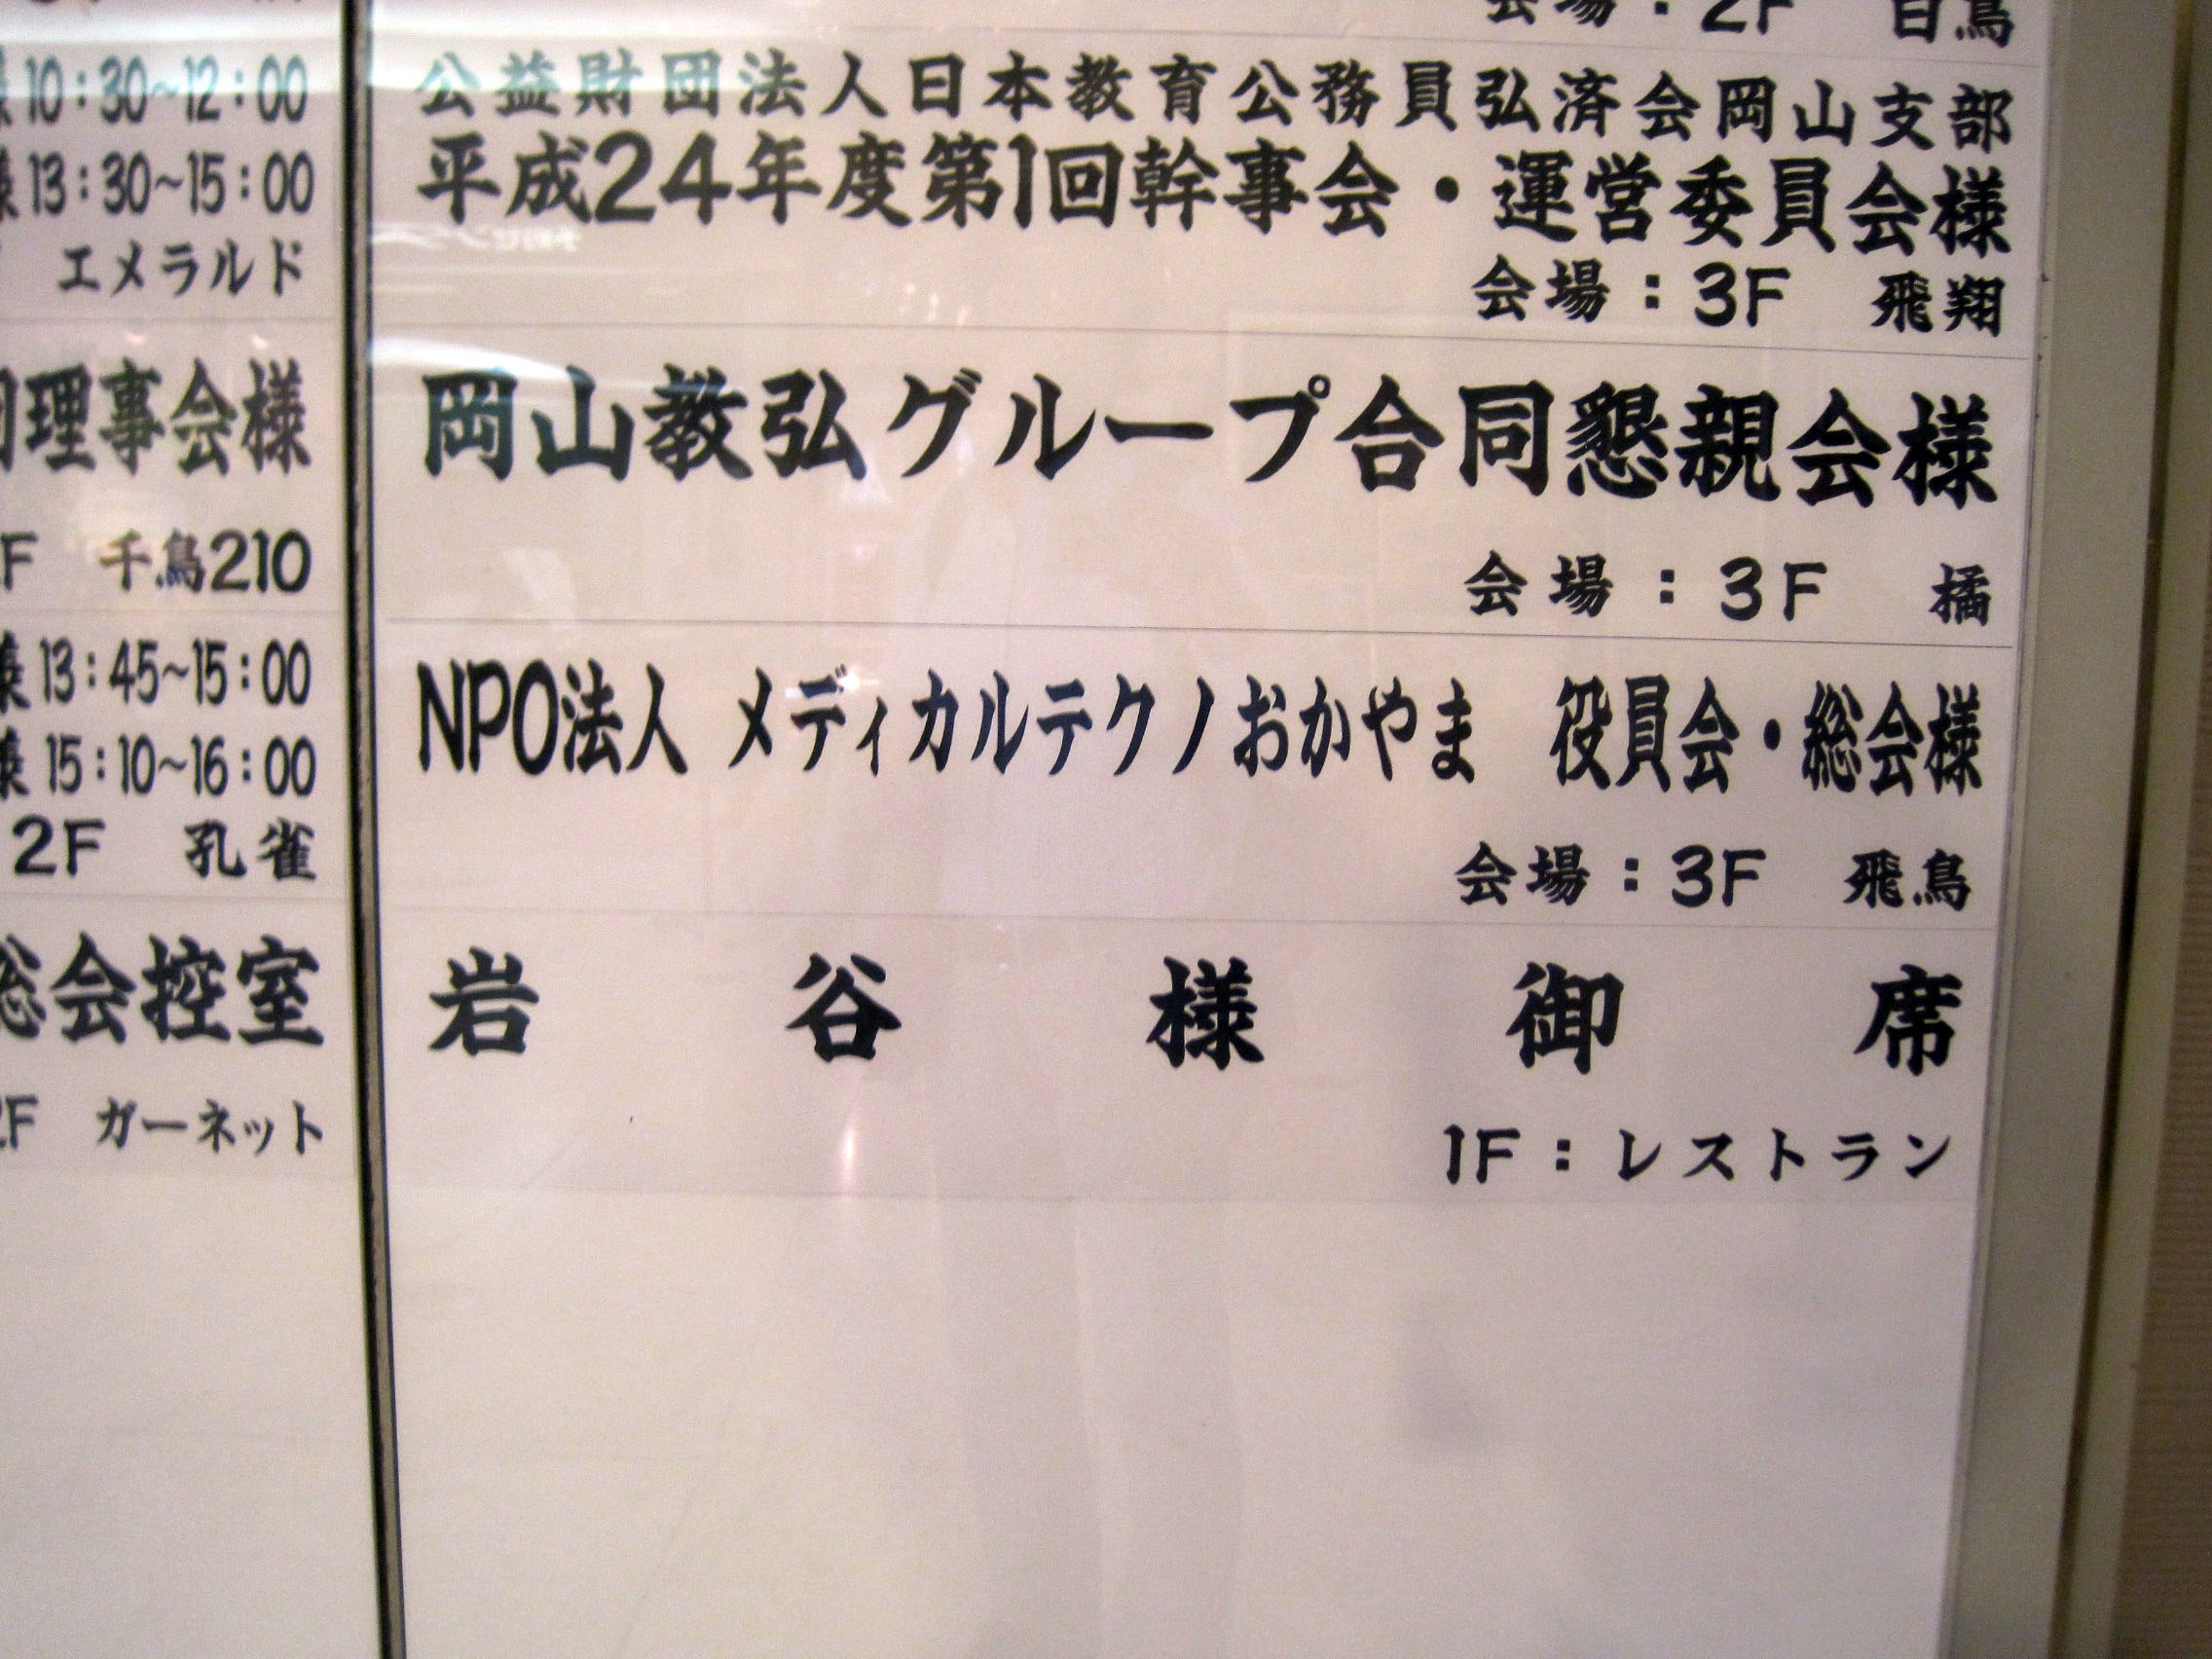 10:30~12:00
13:30~15:00
エメラルド
理事会様
F 千鳥210
様 13:45~15:00
様 15:10~16:00
2F 孔雀
総会控室
2F ガーネット
会場：2F 白鳥
公益財団法人日本教育公務員弘済会岡山支部
平成24年度第1回幹事会・運営委員会様
会場：3F 飛翔
岡山教弘グループ合同懇親会様
会場：3F 橘
NPO法人 メディカルテクノおかやま 役員会・総会様
会場：3F 飛鳥
岩谷様御席
1F：レストラン